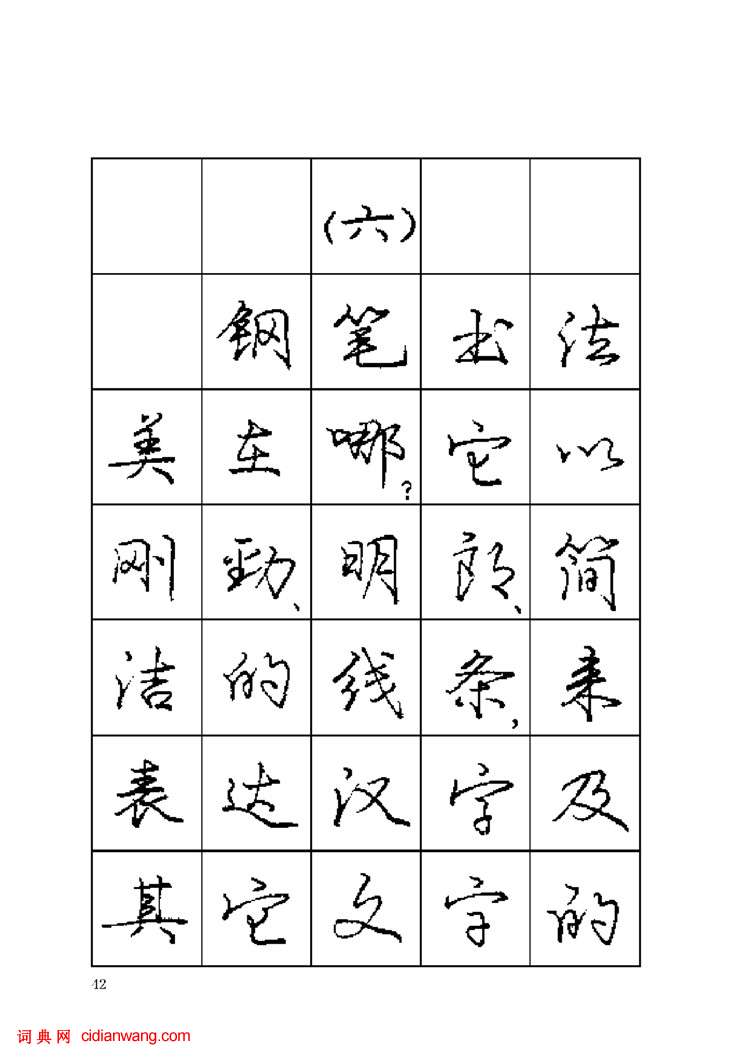 (六)
钢笔书法
美在哪?它以
刚劲、明朗、简
洁的线条,来
表达汉字及
其它文字的
42
词典网 cidianwang.com